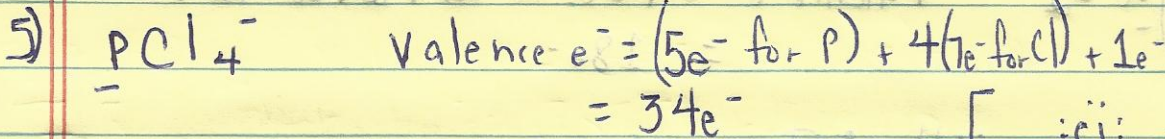 5) PCl₄⁻ Valence e⁻ = (5e⁻ for P) + 4(7e⁻ for Cl) + 1e⁻
= 34e⁻ [ :Cl: